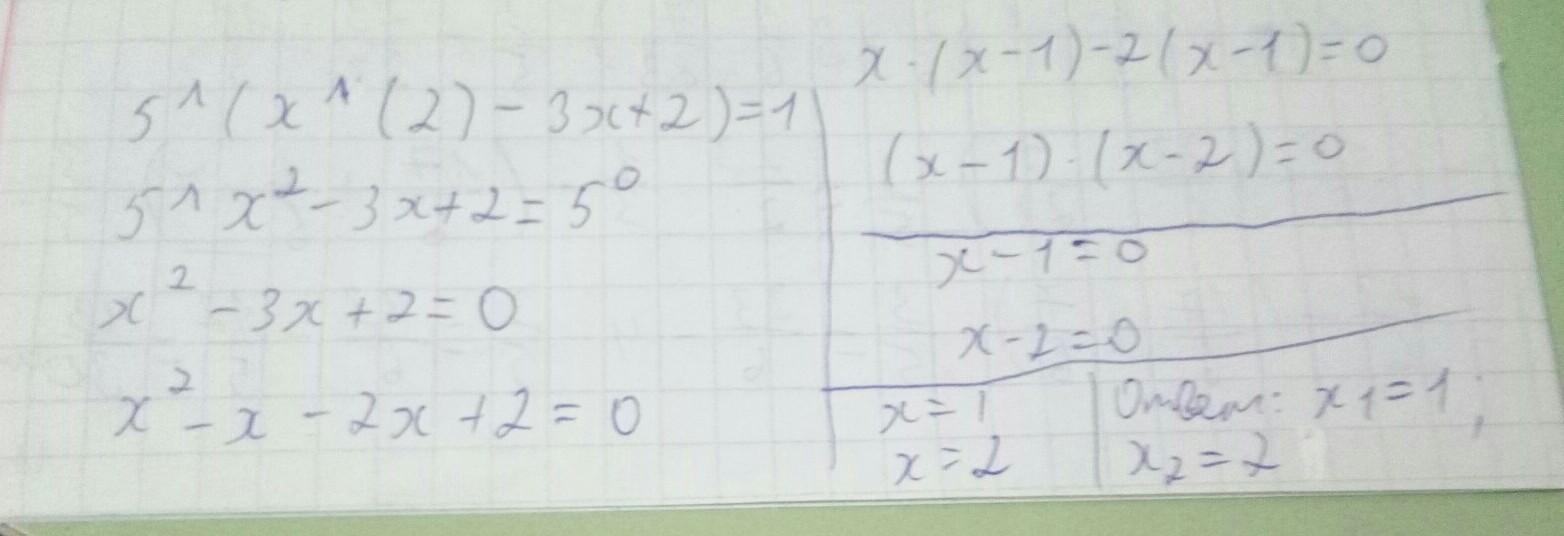 5^(x^(2)-3x+2)=1
5^x²-3x+2=5⁰
x²-3x+2=0
x²-x-2x+2=0
x·(x-1)-2(x-1)=0
(x-1)·(x-2)=0
x-1=0
x-2=0
x=1
x=2
Ответ: x₁=1;
x₂=2